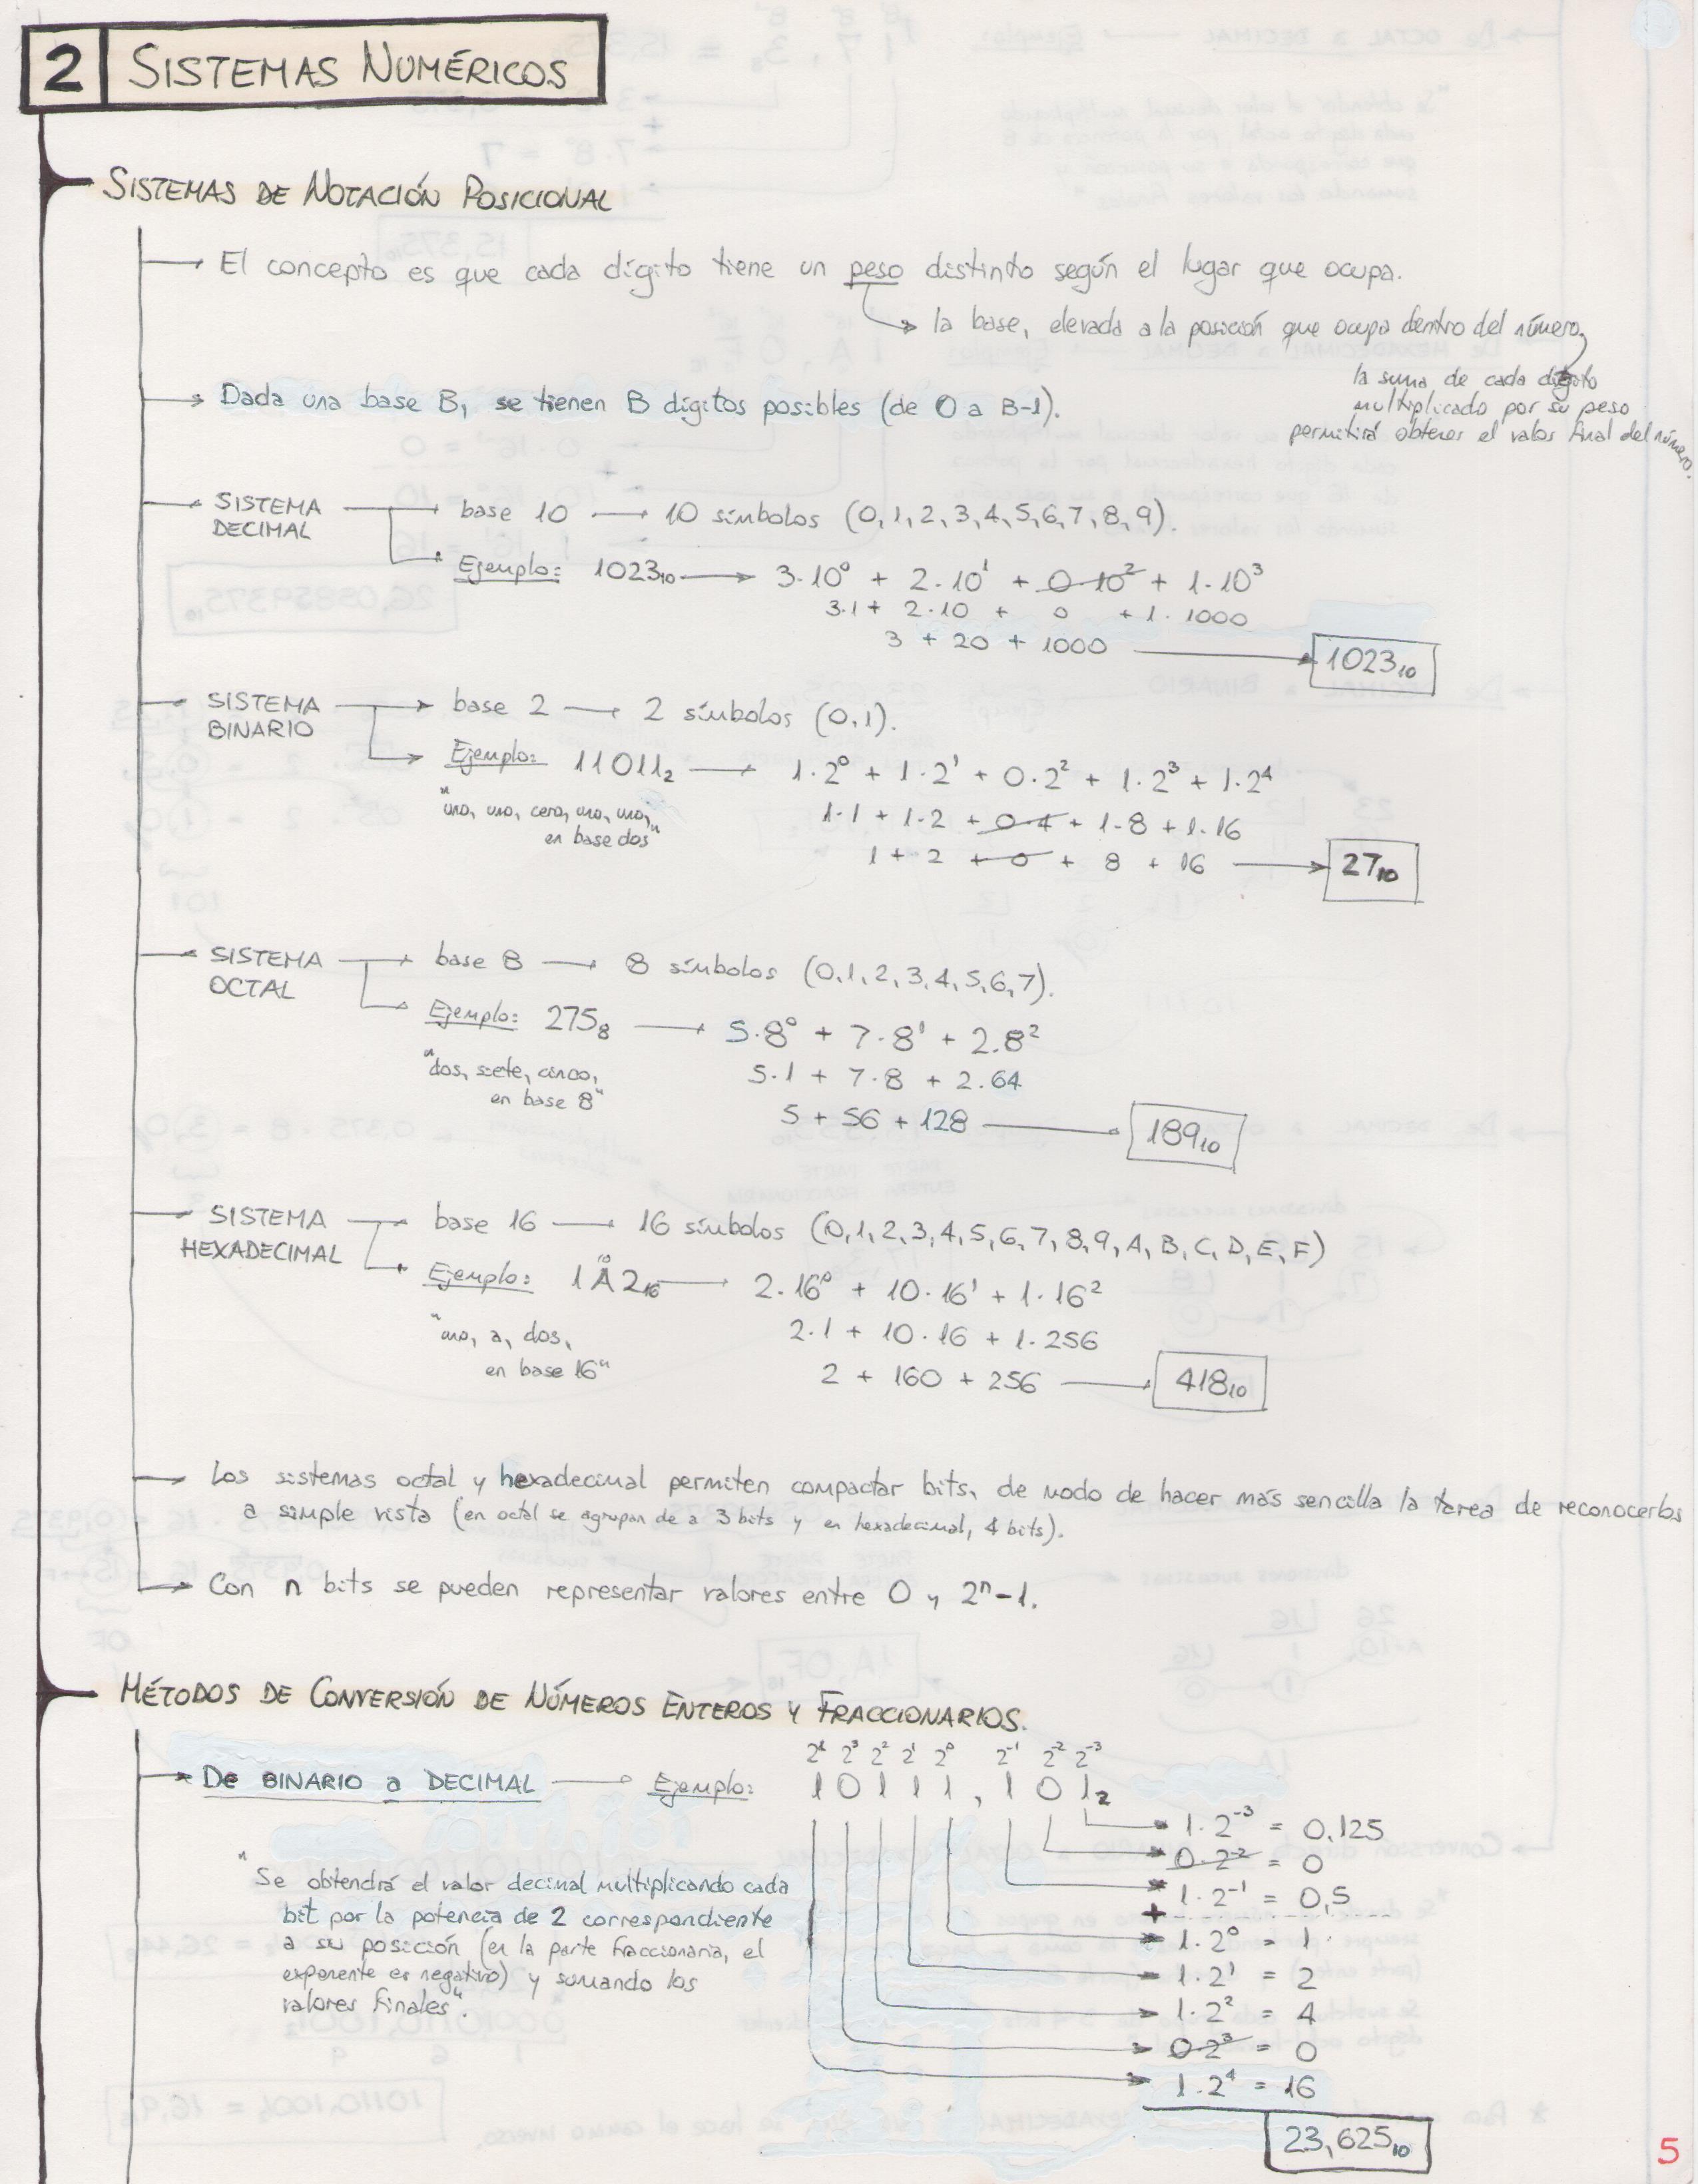 2 SISTEMAS NUMÉRICOS
SISTEMAS DE NOTACIÓN POSICIONAL
El concepto es que cada dígito tiene un peso distinto según el lugar que ocupa.
la base, elevada a la posición que ocupa dentro del número,
la suma de cada dígito
multiplicado por su peso
permitirá obtener el valor final del número.
Dada una base B, se tienen B dígitos posibles (de 0 a B-1).
SISTEMA DECIMAL → base 10 → 10 símbolos (0,1,2,3,4,5,6,7,8,9).
Ejemplo: 1023₁₀ → 3·10⁰ + 2·10¹ + 0·10² + 1·10³
3·1 + 2·10 + 0 + 1·1000
3 + 20 + 1000 → 1023₁₀
SISTEMA BINARIO → base 2 → 2 símbolos (0,1).
Ejemplo: 11011₂ → 1·2⁰ + 1·2¹ + 0·2² + 1·2³ + 1·2⁴
"uno, uno, cero, uno, uno,
en base dos"
1·1 + 1·2 + 0·4 + 1·8 + 1·16
1 + 2 + 0 + 8 + 16 → 27₁₀
SISTEMA OCTAL → base 8 → 8 símbolos (0,1,2,3,4,5,6,7).
Ejemplo: 275₈ → 5·8⁰ + 7·8¹ + 2·8²
"dos, siete, cinco,
en base 8"
5·1 + 7·8 + 2·64
5 + 56 + 128 → 189₁₀
SISTEMA HEXADECIMAL → base 16 → 16 símbolos (0,1,2,3,4,5,6,7,8,9,A,B,C,D,E,F)
10
Ejemplo: 1A2₁₆ → 2·16⁰ + 10·16¹ + 1·16²
"uno, a, dos,
en base 16"
2·1 + 10·16 + 1·256
2 + 160 + 256 → 418₁₀
Los sistemas octal y hexadecimal permiten compactar bits, de modo de hacer más sencilla la tarea de reconocerlos
a simple vista (en octal se agrupan de a 3 bits y en hexadecimal, 4 bits).
Con n bits se pueden representar valores entre 0 y 2ⁿ-1.
MÉTODOS DE CONVERSIÓN DE NÚMEROS ENTEROS Y FRACCIONARIOS.
2⁴ 2³ 2² 2¹ 2⁰ 2⁻¹ 2⁻² 2⁻³
De BINARIO a DECIMAL → Ejemplo: 10111,101₂
1·2⁻³ = 0,125
0·2⁻² = 0
1·2⁻¹ = 0,5
+
1·2⁰ = 1
1·2¹ = 2
1·2² = 4
0·2³ = 0
1·2⁴ = 16
23,625₁₀
"Se obtendrá el valor decimal multiplicando cada
bit por la potencia de 2 correspondiente
a su posición (en la parte fraccionaria, el
exponente es negativo) y sumando los
valores finales".
5